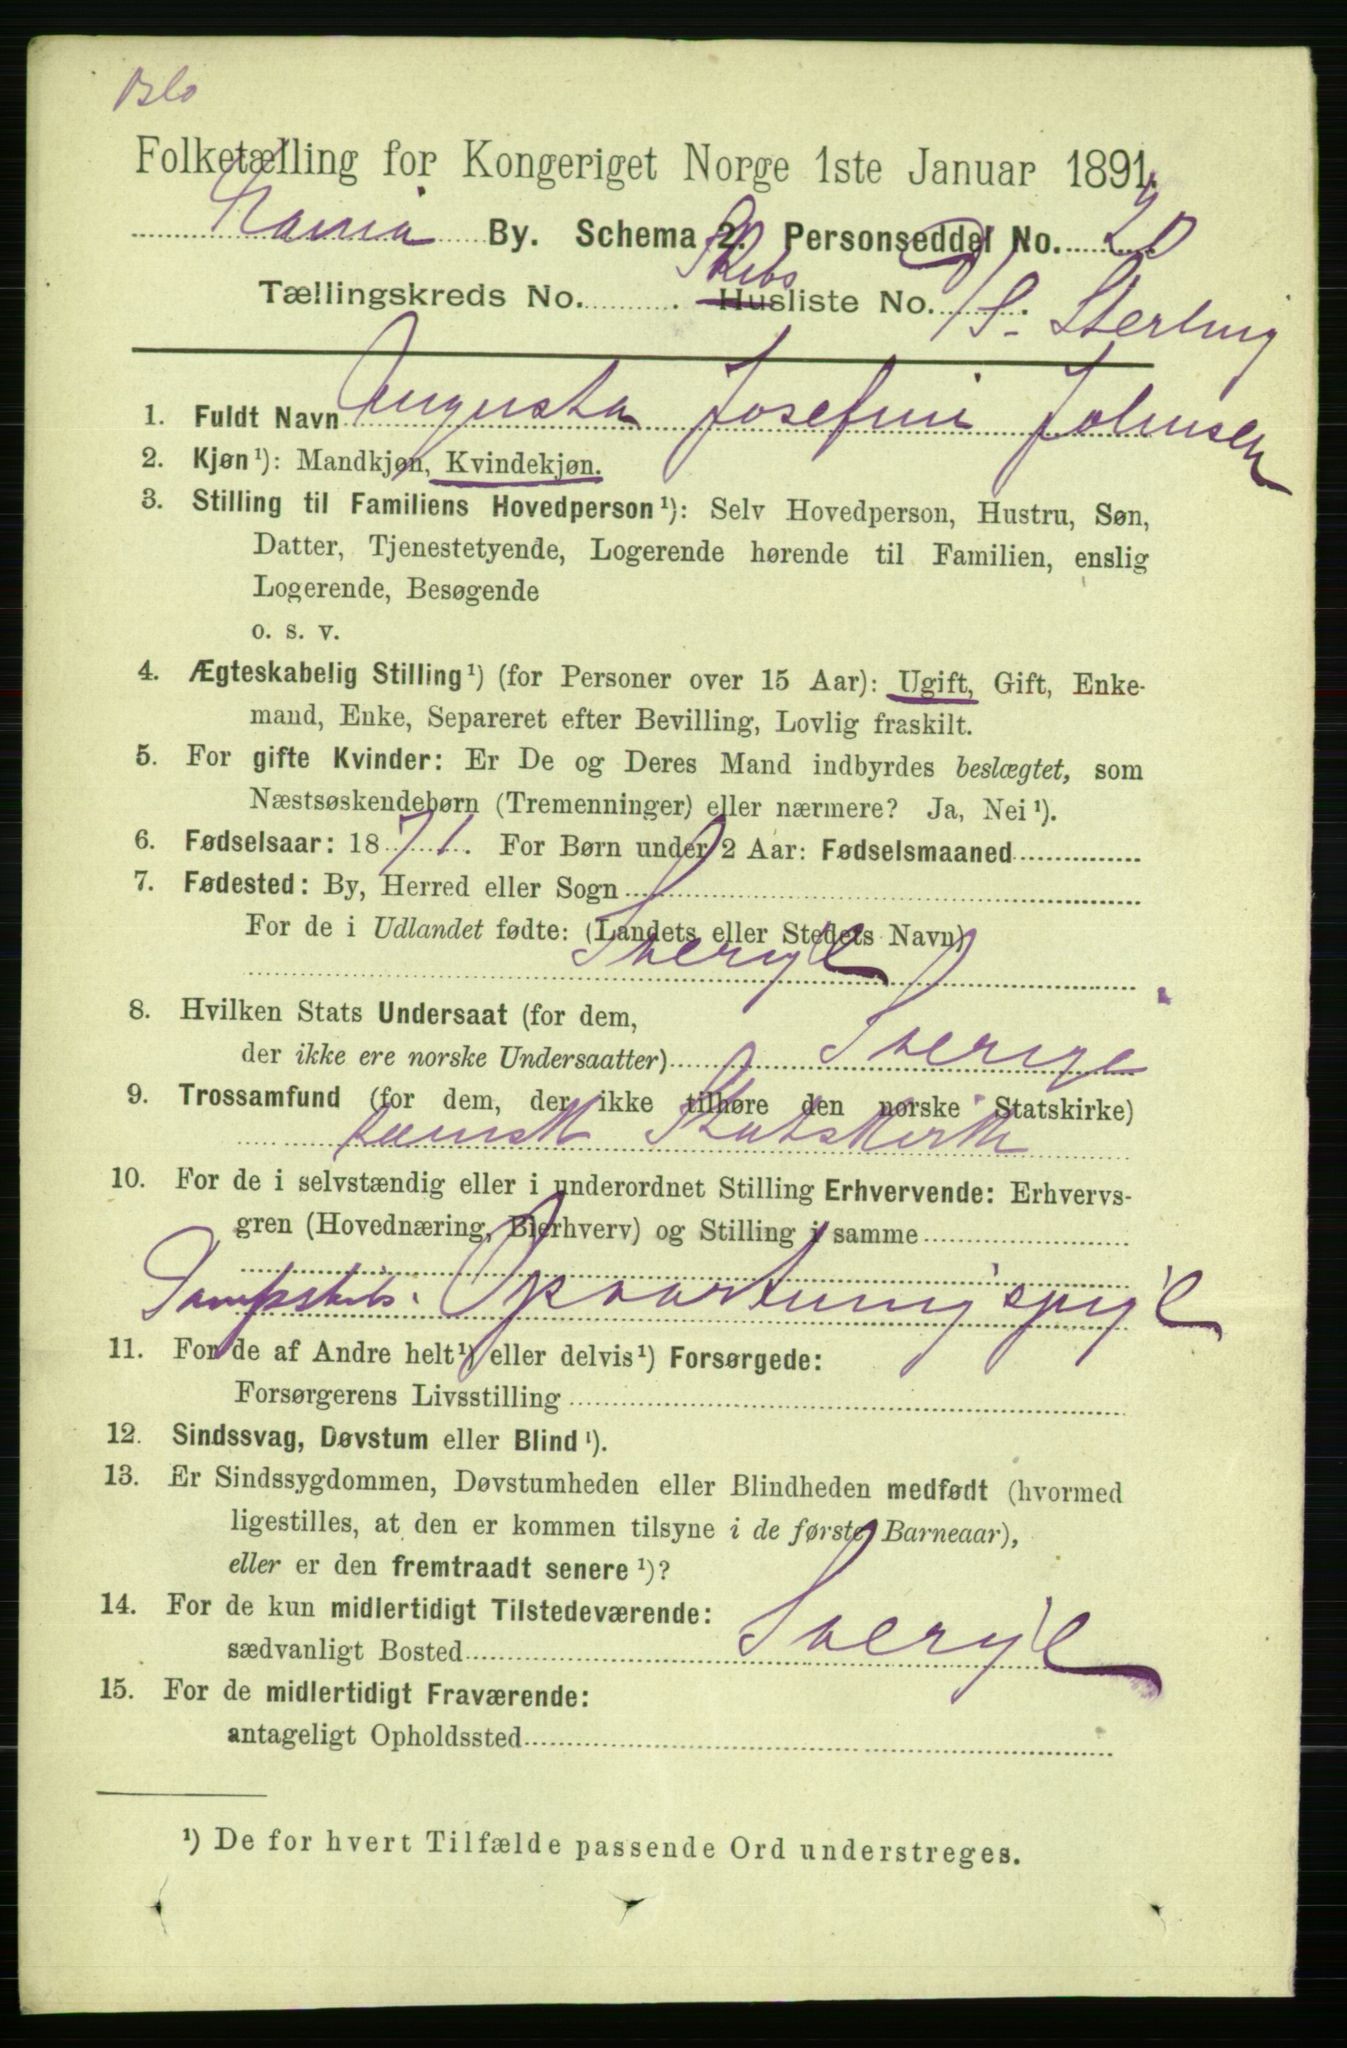 Oslo
Folketælling for Kongeriget Norge 1ste Januar 1891.
By. Schema 2. Personseddel No. 20
Tællingskreds No. ........ Skibs Husliste No. D/S. Sterling
1. Fuldt Navn Augusta Josefine Johnsen
2. Kjøn ¹): Mandkjøn, Kvindekjøn.
3. Stilling til Familiens Hovedperson ¹): Selv Hovedperson, Hustru, Søn,
Datter, Tjenestetyende, Logerende hørende til Familien, enslig
Logerende, Besøgende
o. s. v.
4. Ægteskabelig Stilling ¹) (for Personer over 15 Aar): Ugift, Gift, Enke-
mand, Enke, Separeret efter Bevilling, Lovlig fraskilt.
5. For gifte Kvinder: Er De og Deres Mand indbyrdes beslægtet, som
Næstsøskendebørn (Tremenninger) eller nærmere? Ja, Nei ¹).
6. Fødselsaar: 1871. For Børn under 2 Aar: Fødselsmaaned
7. Fødested: By, Herred eller Sogn
For de i Udlandet fødte: (Landets eller Stedets Navn)
Sverige
8. Hvilken Stats Undersaat (for dem,
der ikke ere norske Undersaatter) Sverige
9. Trossamfund (for dem, der ikke tilhøre den norske Statskirke)
Statskirke
10. For de i selvstændig eller i underordnet Stilling Erhvervende: Erhvervs-
gren (Hovednæring, Bierhverv) og Stilling i samme
Dampskibs. Opvartningspige
11. For de af Andre helt ¹) eller delvis ¹) Forsørgede:
Forsørgerens Livsstilling
12. Sindssvag, Døvstum eller Blind ¹).
13. Er Sindssygdommen, Døvstumheden eller Blindheden medfødt (hvormed
ligestilles, at den er kommen tilsyne i de første Barneaar),
eller er den fremtraadt senere ¹)?
14. For de kun midlertidigt Tilstedeværende:
sædvanligt Bosted Sverige
15. For de midlertidigt Fraværende:
antageligt Opholdssted
¹) De for hvert Tilfælde passende Ord understreges.